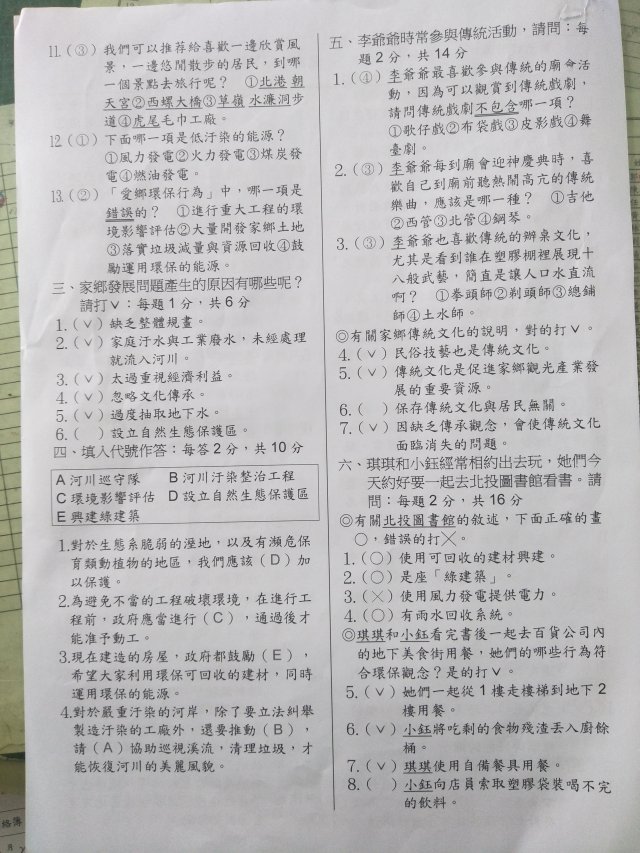 11.（③）我們可以推荐給喜歡一邊欣賞風
景，一邊悠閒散步的居民，到哪
一個景點去旅行呢？　①北港 朝
天宮②西螺大橋③草嶺 水濂洞步
道④虎尾毛巾工廠。
12.（①）下面哪一項是低汙染的能源？
①風力發電②火力發電③煤炭發
電④燃油發電。
13.（②）「愛鄉環保行為」中，哪一項是
錯誤的？　①進行重大工程的環
境影響評估②大量開發家鄉土地
③落實垃圾減量與資源回收④鼓
勵運用環保的能源。
三、家鄉發展問題產生的原因有哪些呢？
請打ˇ：每題1分，共6分
1.（ˇ）缺乏整體規畫。
2.（ˇ）家庭汙水與工業廢水，未經處理
就流入河川。
3.（ˇ）太過重視經濟利益。
4.（ˇ）忽略文化傳承。
5.（ˇ）過度抽取地下水。
6.（　）設立自然生態保護區。
四、填入代號作答：每答2分，共10分
A 河川巡守隊　B 河川汙染整治工程
C 環境影響評估　D 設立自然生態保護區
E 興建綠建築
1.對於生態系脆弱的溼地，以及有瀕危保
育類動植物的地區，我們應該（D）加
以保護。
2.為避免不當的工程破壞環境，在進行工
程前，政府應當進行（C），通過後才
能准予動工。
3.現在建造的房屋，政府都鼓勵（E），
希望大家利用環保可回收的建材，同時
運用環保的能源。
4.對於嚴重汙染的河岸，除了要立法糾舉
製造汙染的工廠外，還要推動（B），
請（A）協助巡視溪流，清理垃圾，才
能恢復河川的美麗風貌。
五、李爺爺時常參與傳統活動，請問：每
題2分，共14分
1.（④）李爺爺最喜歡參與傳統的廟會活
動，因為可以觀賞到傳統戲劇，
請問傳統戲劇不包含哪一項？
①歌仔戲②布袋戲③皮影戲④舞
臺劇。
2.（③）李爺爺每到廟會迎神慶典時，喜
歡自己到廟前聽熱鬧高亢的傳統
樂曲，應該是哪一種？　①吉他
②西管③北管④鋼琴。
3.（③）李爺爺也喜歡傳統的辦桌文化，
尤其是看到誰在塑膠棚裡展現十
八般武藝，簡直是讓人口水直流
啊？　①拳頭師②剃頭師③總鋪
師④土水師。
◎有關家鄉傳統文化的說明，對的打ˇ。
4.（ˇ）民俗技藝也是傳統文化。
5.（ˇ）傳統文化是促進家鄉觀光產業發
展的重要資源。
6.（　）保存傳統文化與居民無關。
7.（ˇ）因缺乏傳承觀念，會使傳統文化
面臨消失的問題。
六、琪琪和小鈺經常相約出去玩，她們今
天約好要一起去北投圖書館看書。請
問：每題2分，共16分
◎有關北投圖書館的敘述，下面正確的畫
○，錯誤的打╳。
1.（○）使用可回收的建材興建。
2.（○）是座「綠建築」。
3.（╳）使用風力發電提供電力。
4.（○）有雨水回收系統。
◎琪琪和小鈺看完書後一起去百貨公司內
的地下美食街用餐，她們的哪些行為符
合環保觀念？是的打ˇ。
5.（ˇ）她們一起從1樓走樓梯到地下2
樓用餐。
6.（ˇ）小鈺將吃剩的食物殘渣丟入廚餘
桶。
7.（ˇ）琪琪使用自備餐具用餐。
8.（　）小鈺向店員索取塑膠袋裝喝不完
的飲料。
絡簿
月